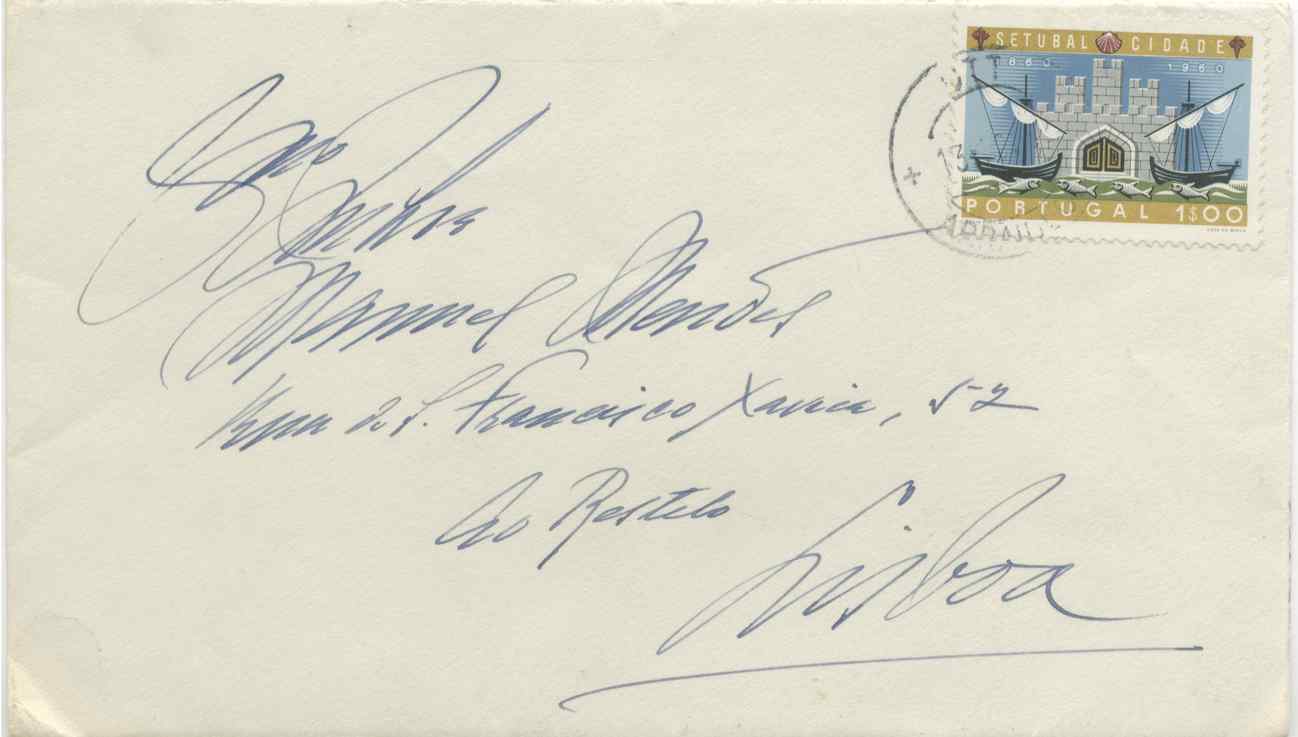 SETUBAL CIDADE
1860 1960
PORTUGAL 1$00
13
Exmo
Senhor
Manuel Mendes
Rua de S. Francisco Xavier, 52
Ao Restelo
Lisboa